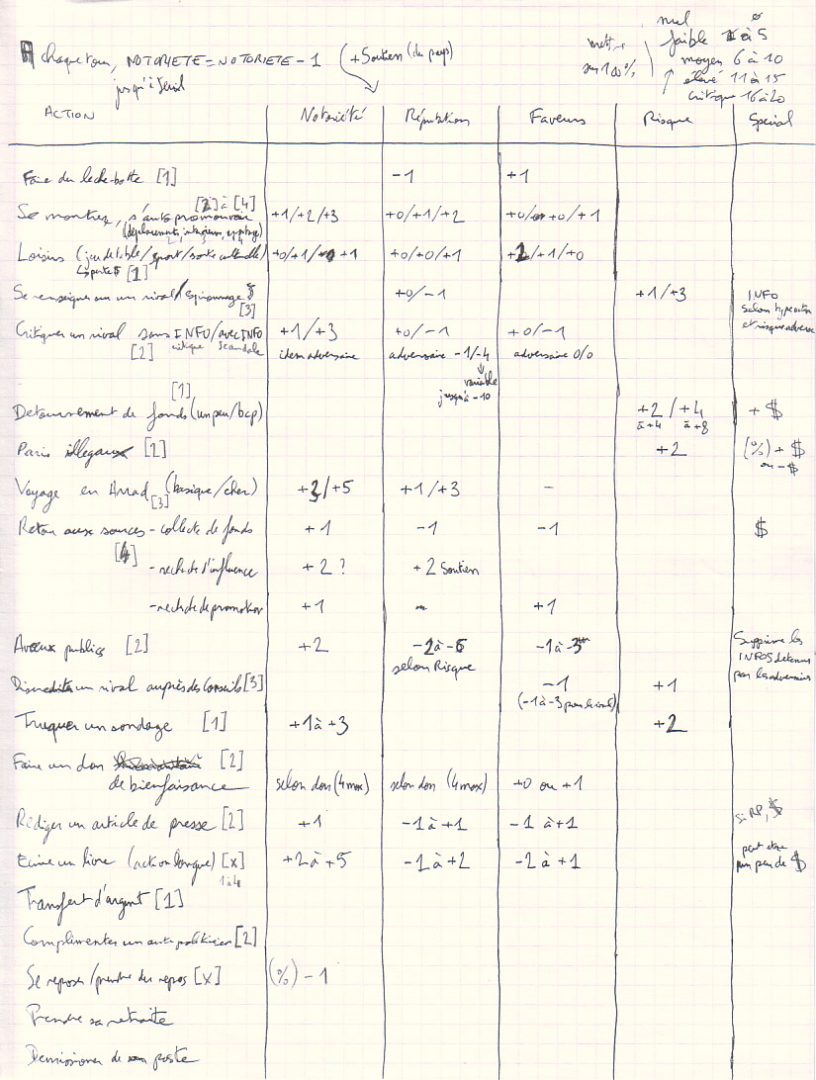 nul ø
faible 1 à 5
moyen 6 à 10
élevé 11 à 15
critique 16 à 20
mettre sur 100%
A chaque tour, NOTORIETE = NOTORIETE - 1 (+ Soutien (du pays)
jusqu'à seuil
ACTION Notoriété Réputation Faveurs Risque Spécial
Faire du lèche-botte [1] -1 +1
[2] à [4]
Se montrer, s'autopromouvoir +1/+2/+3 +0/+1/+2 +0/+0/+1
Loisirs (jeu de table/sport/sortie culturelle) +0/+1/+1 +0/+0/+1 +2/+1/+0
[1]
Se renseigner sur un rival/espionnage $ +0/-1 +1/+3 INFO
[3] selon type action et risque adverse
Critiquer un rival sans INFO/avec INFO +1/+3 +0/-1 +0/-1
[2] critique scandale idem adversaire adversaire -1/-4 adversaire 0/0
variable
jusqu'à -10
[1]
Detournement de fonds (un peu/bcp) +2/+4 + $
à +4 à +8
Paris illegaux [2] +2 (%) + $
ou - $
Voyage en Arrad (basique/cher) +2/+5 +1/+3 -
[3]
Retour aux sources - collecte de fonds +1 -1 -1 $
[4]
- recherche d'influence +2 ? +2 Soutien
- recherche de promotion +1 - +1
Aveux publics [2] +2 -2 à -6 -1 à -3 Supprime les
selon Risque INFOS detenues
par les adversaires
Discrediter un rival auprès des Conseils [3] -1 +1
(-1 à -3 pour le rival)
Truquer un sondage [1] +1 à +3 +2
Faire un don [2]
de bienfaisance selon don (4 max) selon don (4 max) +0 ou +1
Rédiger un article de presse [2] +1 -1 à +1 -1 à +1 Si RP, $
Ecrire un livre (action longue) [x] +2 à +5 -1 à +2 -2 à +1 peut être
1 à 4 un peu de $
Transfert d'argent [1]
Complimenter un autre politicien [2]
Se reposer/prendre du repos [x] (%) - 1
Prendre sa retraite
Demissionner de son poste